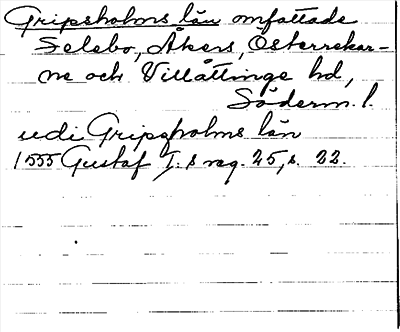 Gripsholms län omfattade
Selebo, Åkers, Österrekar-
ne och Villåttinge hd,
Söderm. l.
udi Gripsholms län
1555 Gustaf I:s reg. 25, s. 22.